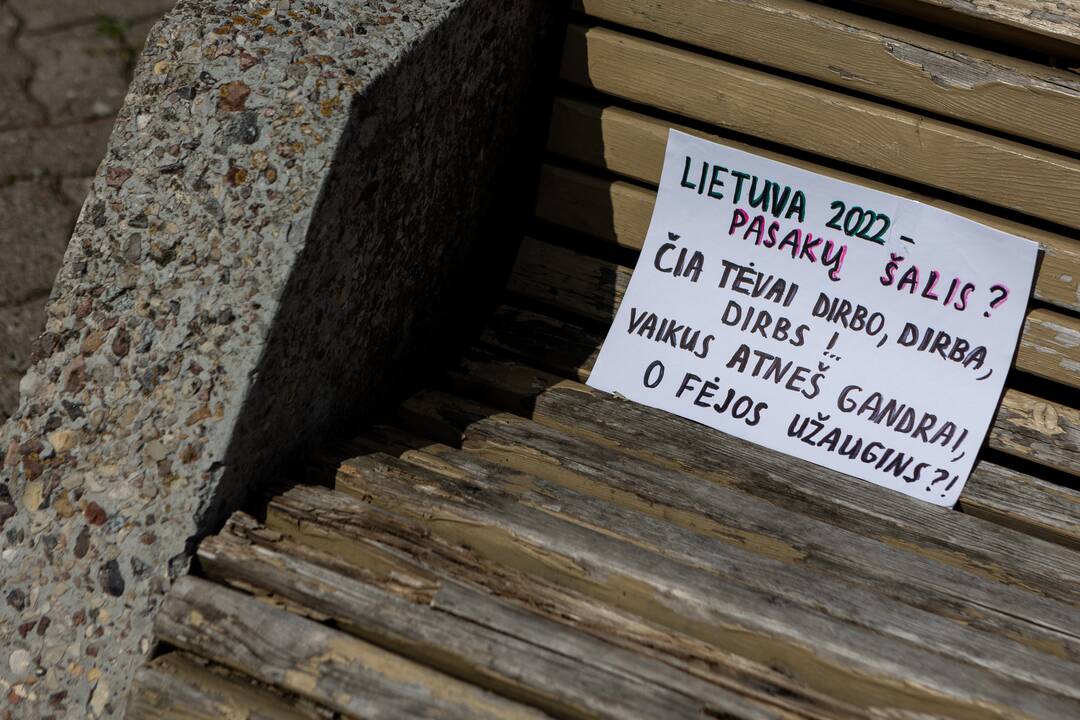 LIETUVA 2022 -
PASAKŲ ŠALIS?
ČIA TĖVAI DIRBO, DIRBA,
DIRBS !..
VAIKUS ATNEŠ GANDRAI,
O FĖJOS UŽAUGINS?!